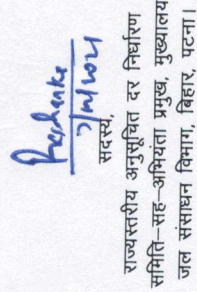 सदस्य,
राज्यस्तरीय अनुसूचित दर निर्धारण
समिति–सह–अभियंता प्रमुख, मुख्यालय
जल संसाधन विभाग, बिहार, पटना।